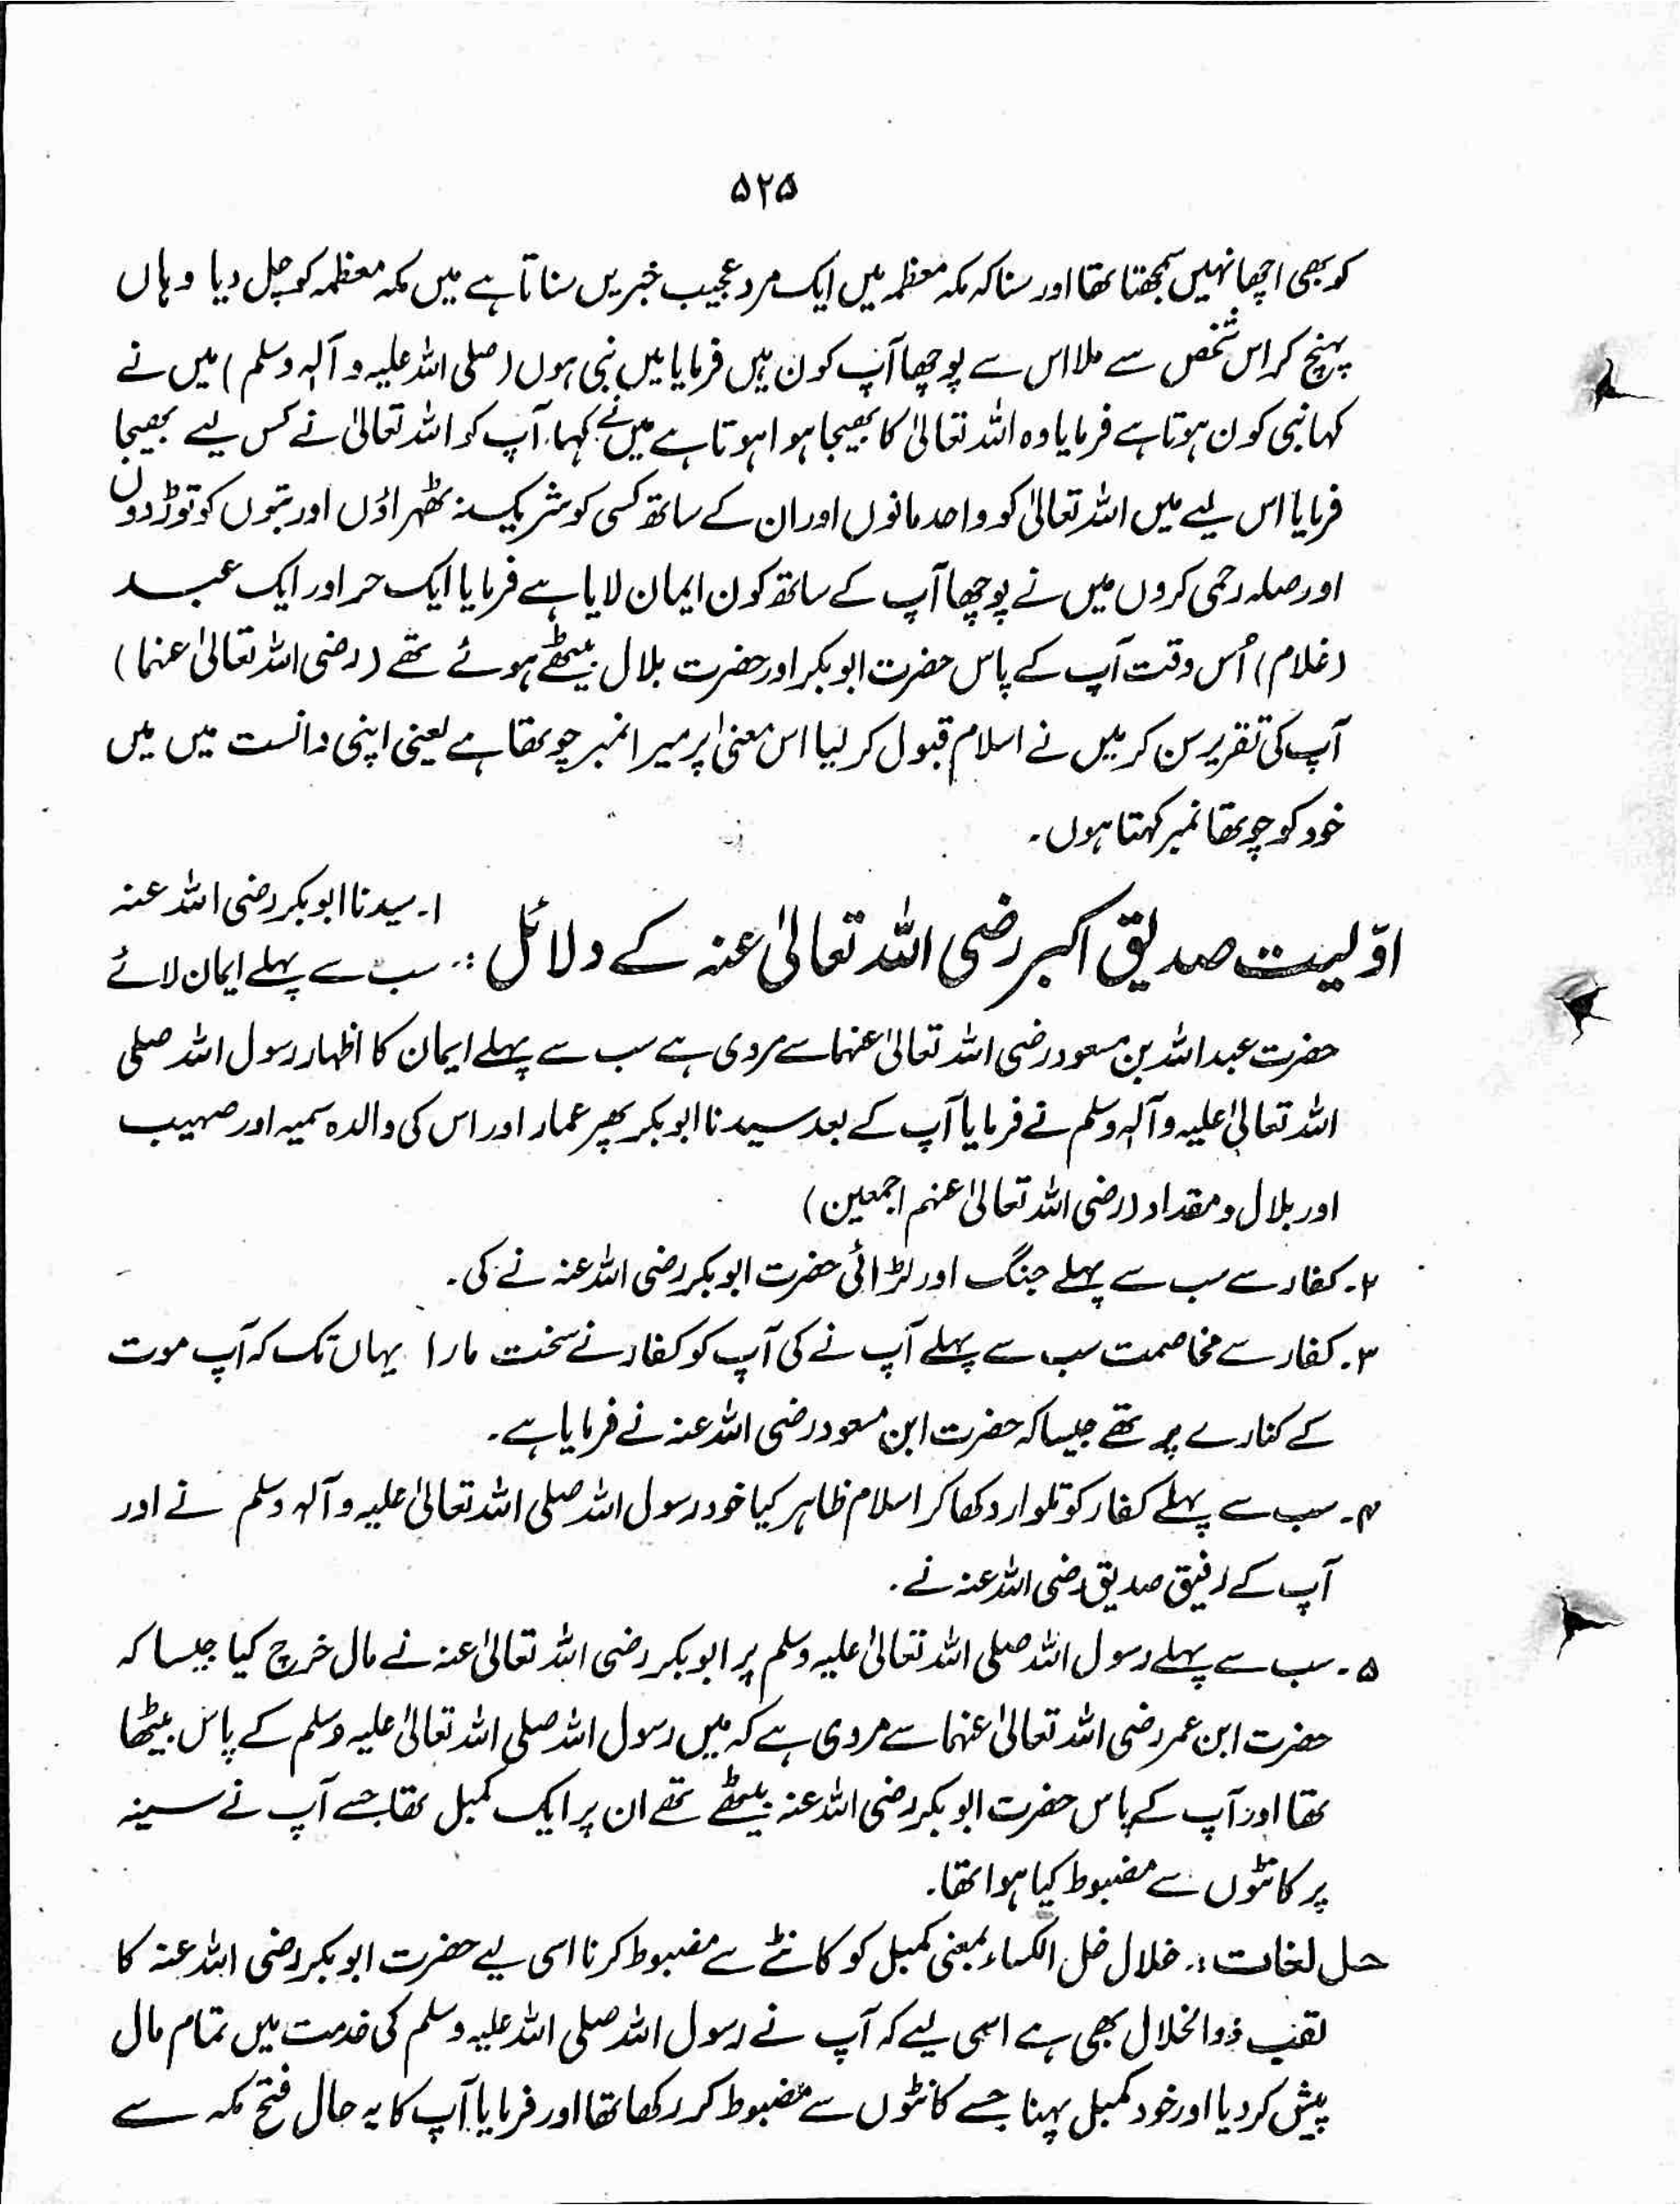 ۵۲۵
کو بھی اچھا نہیں سمجھتا تھا اور سنا کہ مکہ معظمہ میں ایک مرد عجیب خبریں سناتا ہے میں مکہ معظمہ کو چل دیا وہاں
پہنچ کر اس شخص سے ملا اس سے پوچھا آپ کون ہیں فرمایا میں نبی ہوں (صلی اللہ علیہ و آلہ وسلم) میں نے
کہا نبی کون ہوتا ہے فرمایا وہ اللہ تعالیٰ کا بھیجا ہوا ہوتا ہے میں نے کہا، آپ کو اللہ تعالیٰ نے کس لیے بھیجا
فرمایا اس لیے میں اللہ تعالیٰ کو واحد مانوں اور ان کے ساتھ کسی کو شریک نہ ٹھہراؤں اور بتوں کو توڑ دوں
اور صلہ رحمی کروں میں نے پوچھا آپ کے ساتھ کون ایمان لایا ہے فرمایا ایک حر اور ایک عبد
(غلام) اُس وقت آپ کے پاس حضرت ابوبکر اور حضرت بلال بیٹھے ہوئے تھے (رضی اللہ تعالیٰ عنہما)
آپ کی تقریر سن کر میں نے اسلام قبول کر لیا اس معنیٰ پر میرا نمبر چوتھا ہے یعنی اپنی دانست میں میں
خود کو چوتھا نمبر کہتا ہوں۔
اوّلیت صدیق اکبر رضی اللہ تعالیٰ عنہ کے دلائل :۔ ۱۔ سیدنا ابوبکر رضی اللہ عنہ
سب سے پہلے ایمان لائے
حضرت عبد اللہ بن مسعود رضی اللہ تعالیٰ عنہما سے مروی ہے سب سے پہلے ایمان کا اظہار رسول اللہ صلی
اللہ تعالیٰ علیہ و آلہ وسلم نے فرمایا آپ کے بعد سیدنا ابوبکر پھر عمار اور اس کی والدہ سمیہ اور صہیب
اور بلال و مقداد (رضی اللہ تعالیٰ عنہم اجمعین)
۲۔ کفار سے سب سے پہلے جنگ اور لڑائی حضرت ابوبکر رضی اللہ عنہ نے کی۔
۳۔ کفار سے مخاصمت سب سے پہلے آپ نے کی آپ کو کفار نے سخت مارا یہاں تک کہ آپ موت
کے کنارے پر تھے جیسا کہ حضرت ابن مسعود رضی اللہ عنہ نے فرمایا ہے۔
۴۔ سب سے پہلے کفار کو تلوار دکھا کر اسلام ظاہر کیا خود رسول اللہ صلی اللہ تعالیٰ علیہ و آلہ وسلم نے اور
آپ کے رفیق صدیق رضی اللہ عنہ نے۔
۵۔ سب سے پہلے رسول اللہ صلی اللہ تعالیٰ علیہ وسلم پر ابوبکر رضی اللہ تعالیٰ عنہ نے مال خرچ کیا جیسا کہ
حضرت ابن عمر رضی اللہ تعالیٰ عنہما سے مروی ہے کہ میں رسول اللہ صلی اللہ تعالیٰ علیہ وسلم کے پاس بیٹھا
تھا اور آپ کے پاس حضرت ابوبکر رضی اللہ عنہ بیٹھے تھے ان پر ایک کمبل تھا جسے آپ نے سینہ
پر کانٹوں سے مضبوط کیا ہوا تھا۔
حل لغات :۔ خلال خل الکساء بمعنی کمبل کو کانٹے سے مضبوط کرنا اسی لیے حضرت ابوبکر رضی اللہ عنہ کا
لقب ذوالخلال بھی ہے اسی لیے کہ آپ نے رسول اللہ صلی اللہ علیہ وسلم کی خدمت میں تمام مال
پیش کر دیا اور خود کمبل پہنا جسے کانٹوں سے مضبوط کر رکھا تھا اور فرمایا آپ کا یہ حال فتح مکہ سے